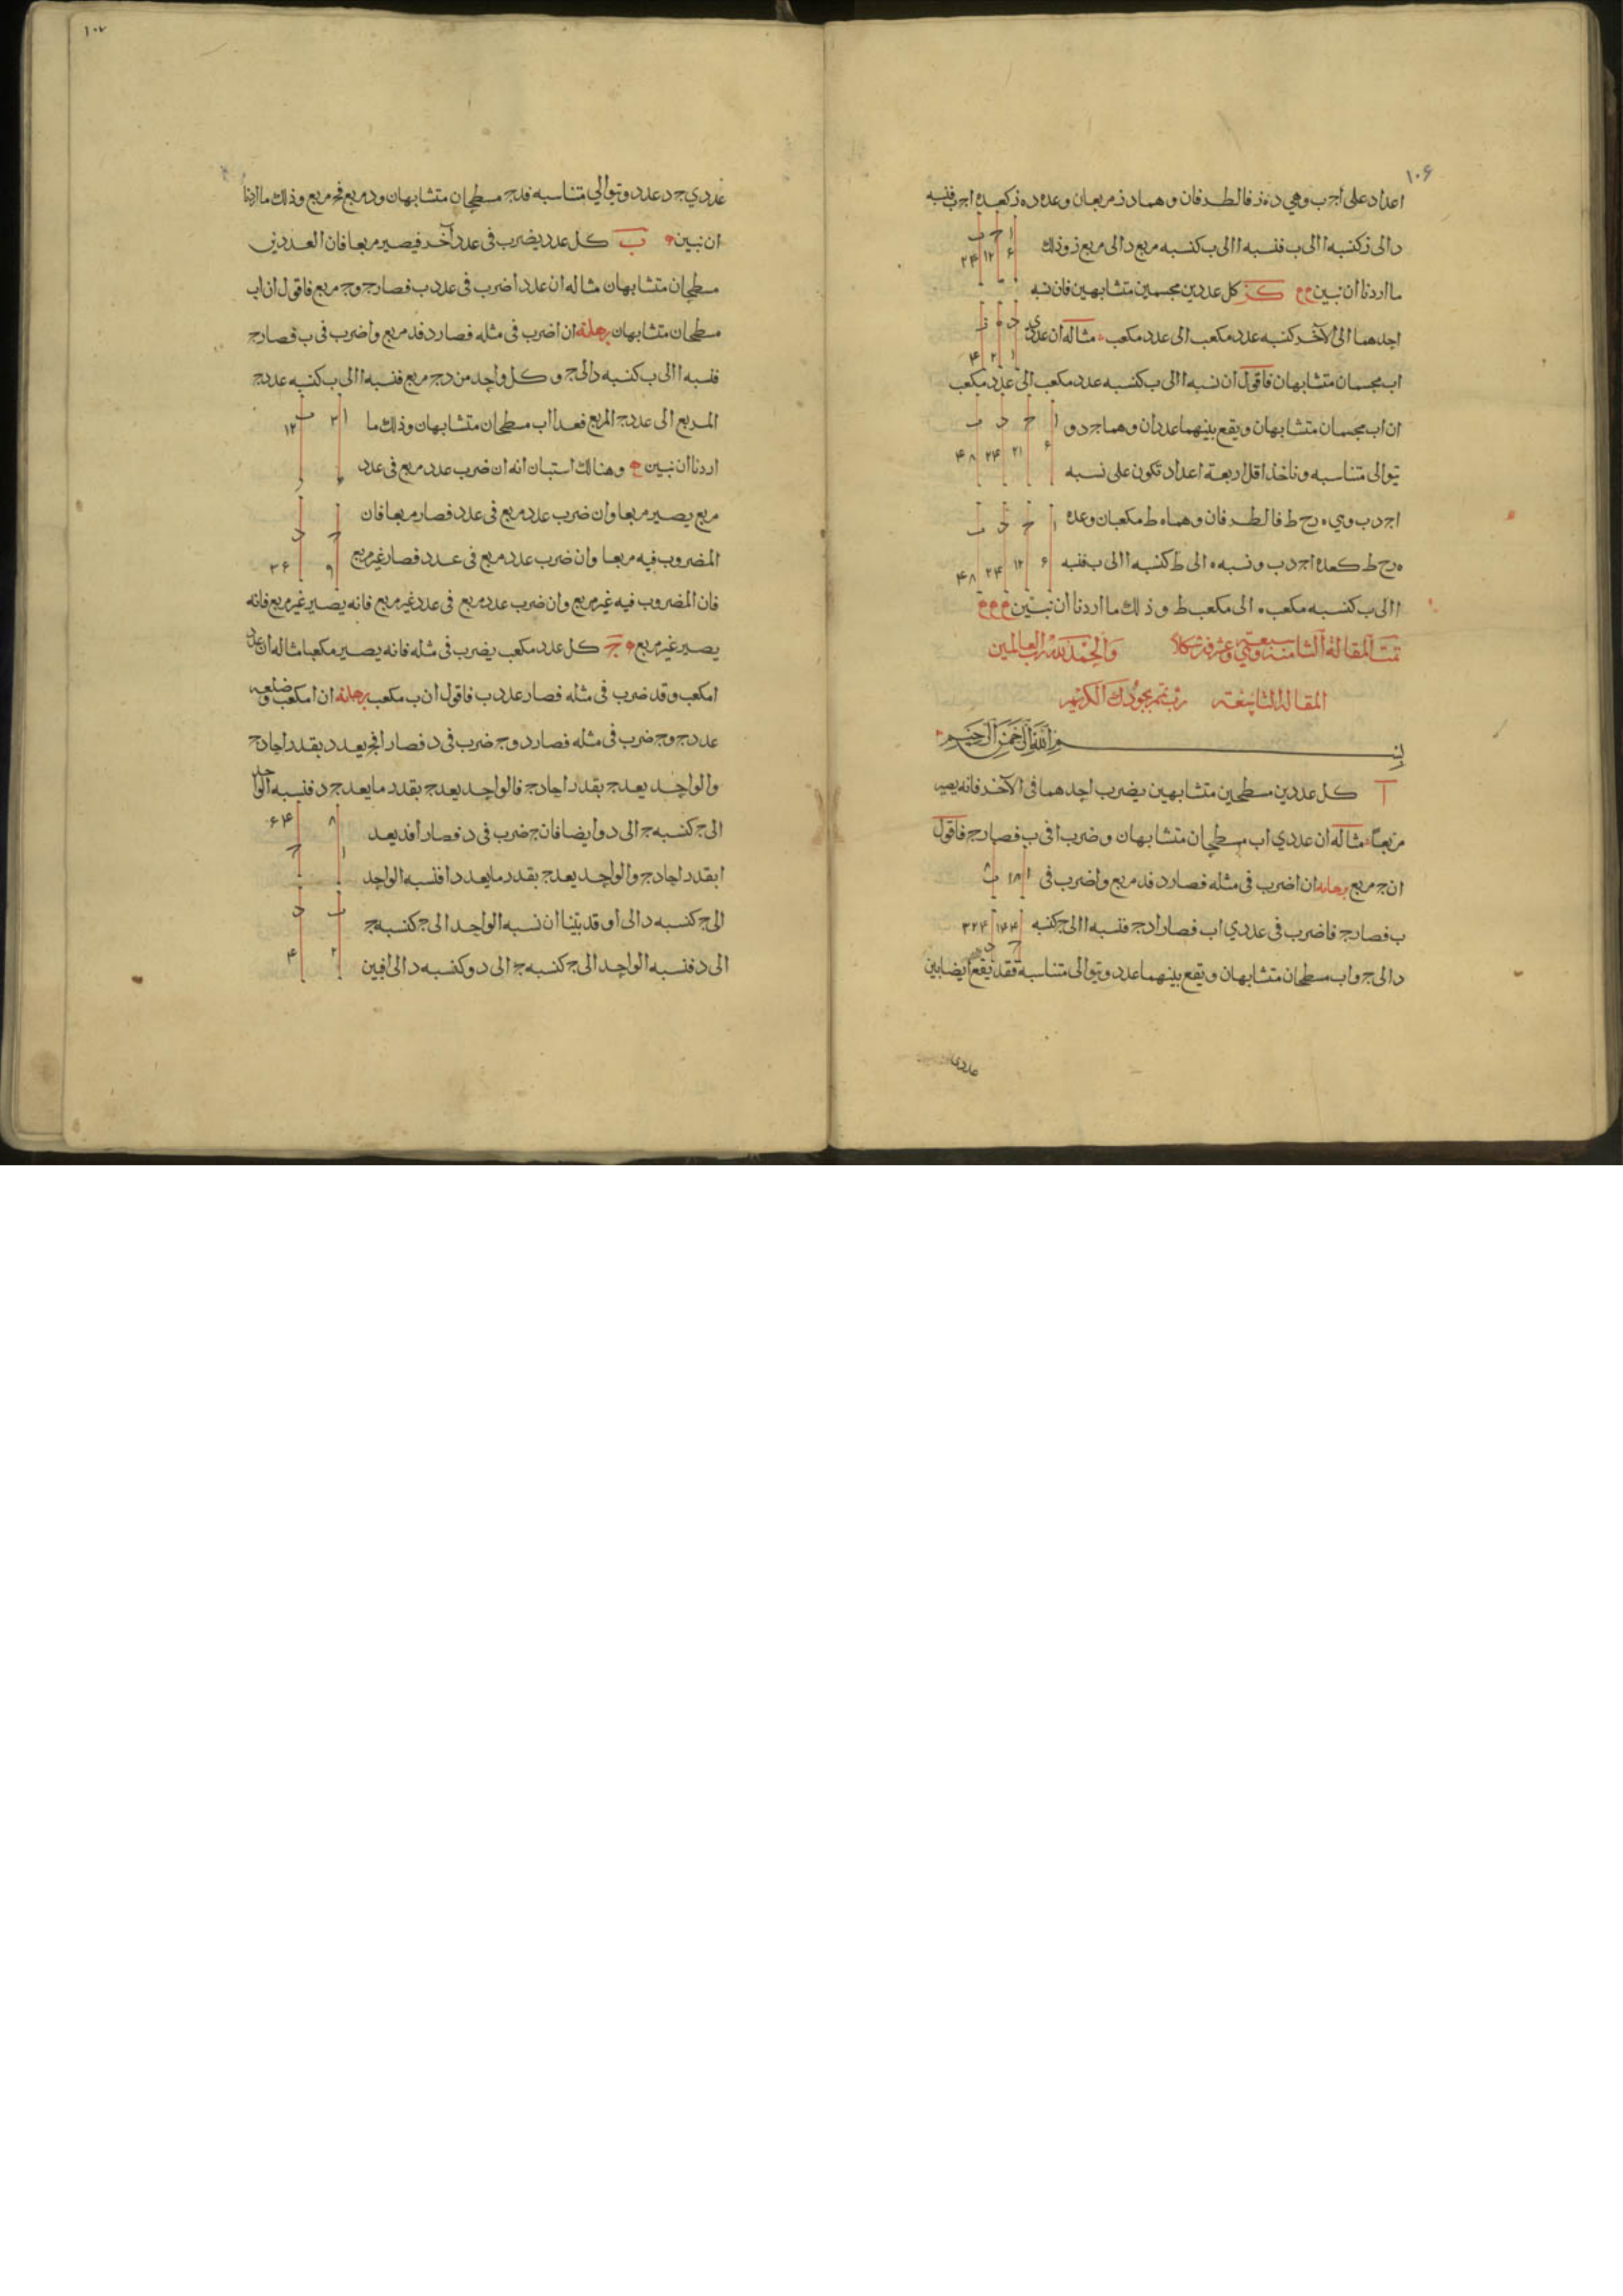 ١٠۶
اعداد على ا ج ب وهي د ه ز فالطرفان وهما د ز مربعان وعده د ه ز كعده ا ج ب فنسبه
د الى ز كنسبه ا الى ب فنسبه ا الى ب كنسبه مربع د الى مربع ز وذلك
ا ج ب
۶ ١٢ ٢۴
ما اردنا ان نبين كز كل عددين مجسمين متشابهين فان نسبه
احدهما الى الآخر كنسبه عدد مكعب الى عدد مكعب مثاله ان عددي
د ه ز
١ ٢ ۴
ا ب مجسمان متشابهان فاقول ان نسبه ا الى ب كنسبه عدد مكعب الى عدد مكعب
ان ا ب مجسمان متشابهان ويقع بينهما عددان وهما ج د و
ا ج د ب
٢۴ ۴٨
تتوالى متناسبه وناخذ اقل اربعة اعداد تكون على نسبه
ا ج د ب وهي ه ح ط فالطرفان وهما ه ط مكعبان وعده
ه ح ط كعده ا ج د ب ونسبه ه الى ط كنسبه ا الى ب فنسبه
۶ ١٢ ٢۴ ۴٨
ا الى ب كنسبه مكعب ه الى مكعب ط وذلك ما اردنا ان نبين
تمت المقالة الثامنة وهي سبعة وعشرون شكلا والحمد لله رب العالمين
المقالة التاسعة رب تمم بجودك الكريم
بسم الله الرحمن الرحيم
ا كل عددين مسطحين متشابهين يضرب احدهما في الآخر فانه يصير
مربعا مثاله ان عددي ا ب مسطحان متشابهان وضرب ا في ب فصار ج فاقول
ان ج مربع برهانه ان ا ضرب في مثله فصار د فد مربع وا ضرب في
ا ١٨ ب ٨
ب فصار ج فا ضرب في عددي ا ب فصار ا د ج فنسبه ا الى ج كنسبه
١۴۴ ٣٢۴
ج د
د الى ج وا ب مسطحان متشابهان ويقع بينهما عدد وتتوالى متناسبة فقد يقع ايضا بين
عددي
١٠٧
عددي ج د عدد وتتوالي متناسبه فد ج مسطحان متشابهان ود مربع فج مربع وذلك ما اردنا
ان نبين ب كل عدد يضرب في عدد آخر فيصير مربعا فان العددين
مسطحان متشابهان مثاله ان عدد ا ضرب في عدد ب فصار ج وج مربع فاقول ان ا ب
مسطحان متشابهان برهانه ان ا ضرب في مثله فصار د فد مربع وا ضرب في ب فصار ج
فنسبه ا الى ب كنسبه د الى ج وكل واحد من د ج مربع فنسبه ا الى ب كنسبه عدد ج
المربع الى عدد ج المربع فعددا ا ب مسطحان متشابهان وذلك ما
ا ب
١٢
اردنا ان نبين وهنالك استبان انه ان ضرب عدد مربع في عدد
مربع يصير مربعا وان ضرب عدد مربع في عدد فصار مربعا فان
ج د
المضروب فيه مربعا وان ضرب عدد مربع في عدد فصار غير مربع
٩ ٣۶
فان المضروب فيه غير مربع وان ضرب عدد مربع في عدد غير مربع فانه يصير غير مربع فانه
يصير غير مربع ج كل عدد مكعب يضرب في مثله فانه يصير مكعبا مثاله ان عدد
ا مكعب وقد ضرب في مثله فصار عدد ب فاقول ان ب مكعب برهانه ان ا مكعب وضلعه
عدد ج وج ضرب في مثله فصار د وج ضرب في د فصار ا فج يعد د بقدر احاد ج
والواحد يعد ج بقدر احاد ج فالواحد يعد ج بقدر ما يعد ج د فنسبه الواحد
الى ج كنسبه ج الى د وايضا فان ج ضرب في د فصار ا فد يعد
٨ ۶۴
ا ج
ا بقدر احاد ج والواحد يعد ج بقدر ما يعد د ا فنسبه الواحد
الى ج كنسبه د الى ا وقد بينا ان نسبه الواحد الى ج كنسبه ج
ب د
٢ ۴
الى د فنسبه الواحد الى ج كنسبه ج الى د وكنسبه د الى ا فبين